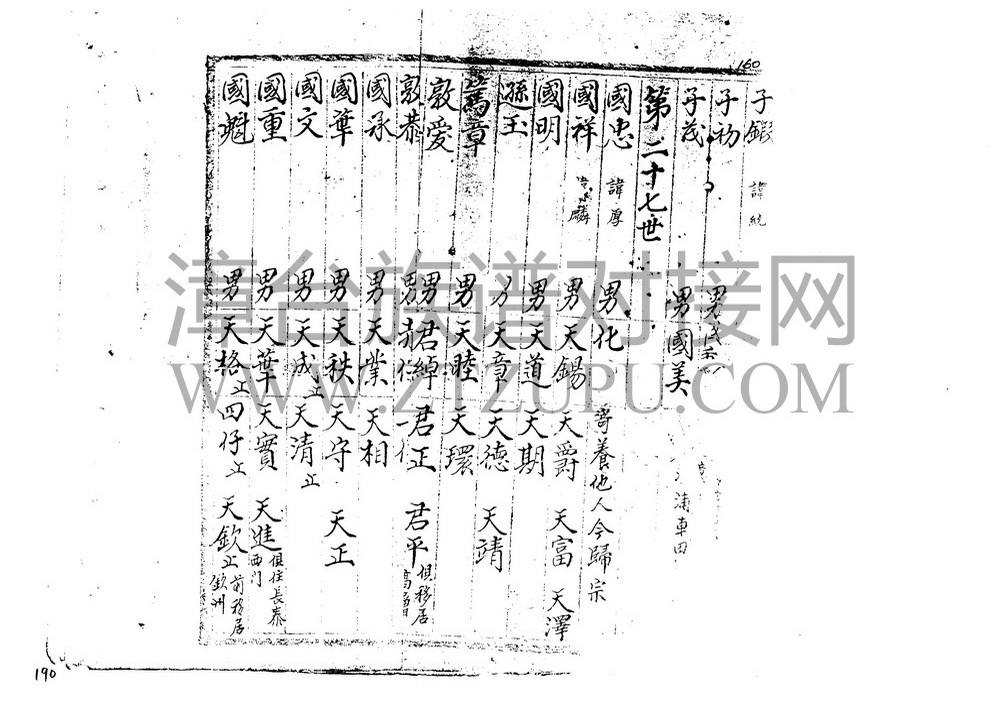 160
子鍜 諱統
子初 男
子茂 男國美 浦車田
第二十七世
國忠 諱厚 男化 寄養他人今歸宗
國祥 麟 男天錫 天爵 天富 天澤
國明 男天道 天期
遜玉 天章 天德 天靖
萬章 男天睦 天環
敦愛 男君綽 君正 君平 俱移居
敦恭 男
國承 男天業 天相
國華 男天秩 天守 天正
國文 男天成止 天清止
國重 男天葉 天實 天進 俱住長泰西門
國魁 男天格止 四仔止 天欽止 前移居欽洲
190
漳台族谱对接网
WWW.ZTZUPU.COM